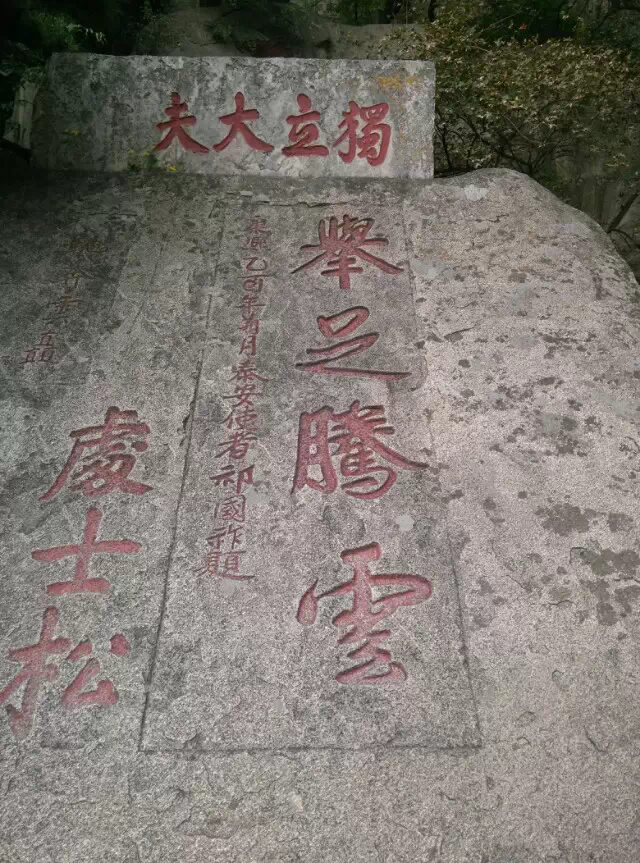 獨立大夫
舉足騰雲
康熙乙酉年月泰安使者祁國祚題
處士松